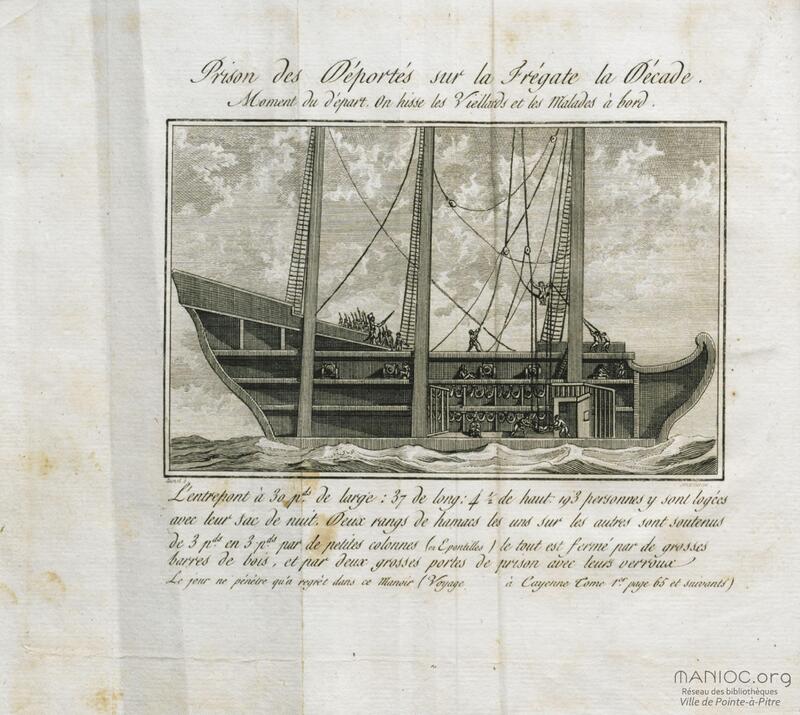 Prison des Déportés sur la Frégate la Décade.
Moment du départ. On hisse les Viellards et les Malades à bord.
L'entrepont à 30 pds de large : 37 de long : 4 ½ de haut : 193 personnes y sont logées
avec leur sac de nuit. Deux rangs de hamacs les uns sur les autres sont soutenus
de 3 pds en 3 pds par de petites colonnes (ou Epontilles) le tout est fermé par de grosses
barres de bois, et par deux grosses portes de prison avec leurs verroux
Le jour ne pénètre qu'a regrèt dans ce Manoir (Voyage à Cayenne Tome 1er page 65 et suivants)
MANIOC.org
Réseau des bibliothèques
Ville de Pointe-à-Pitre